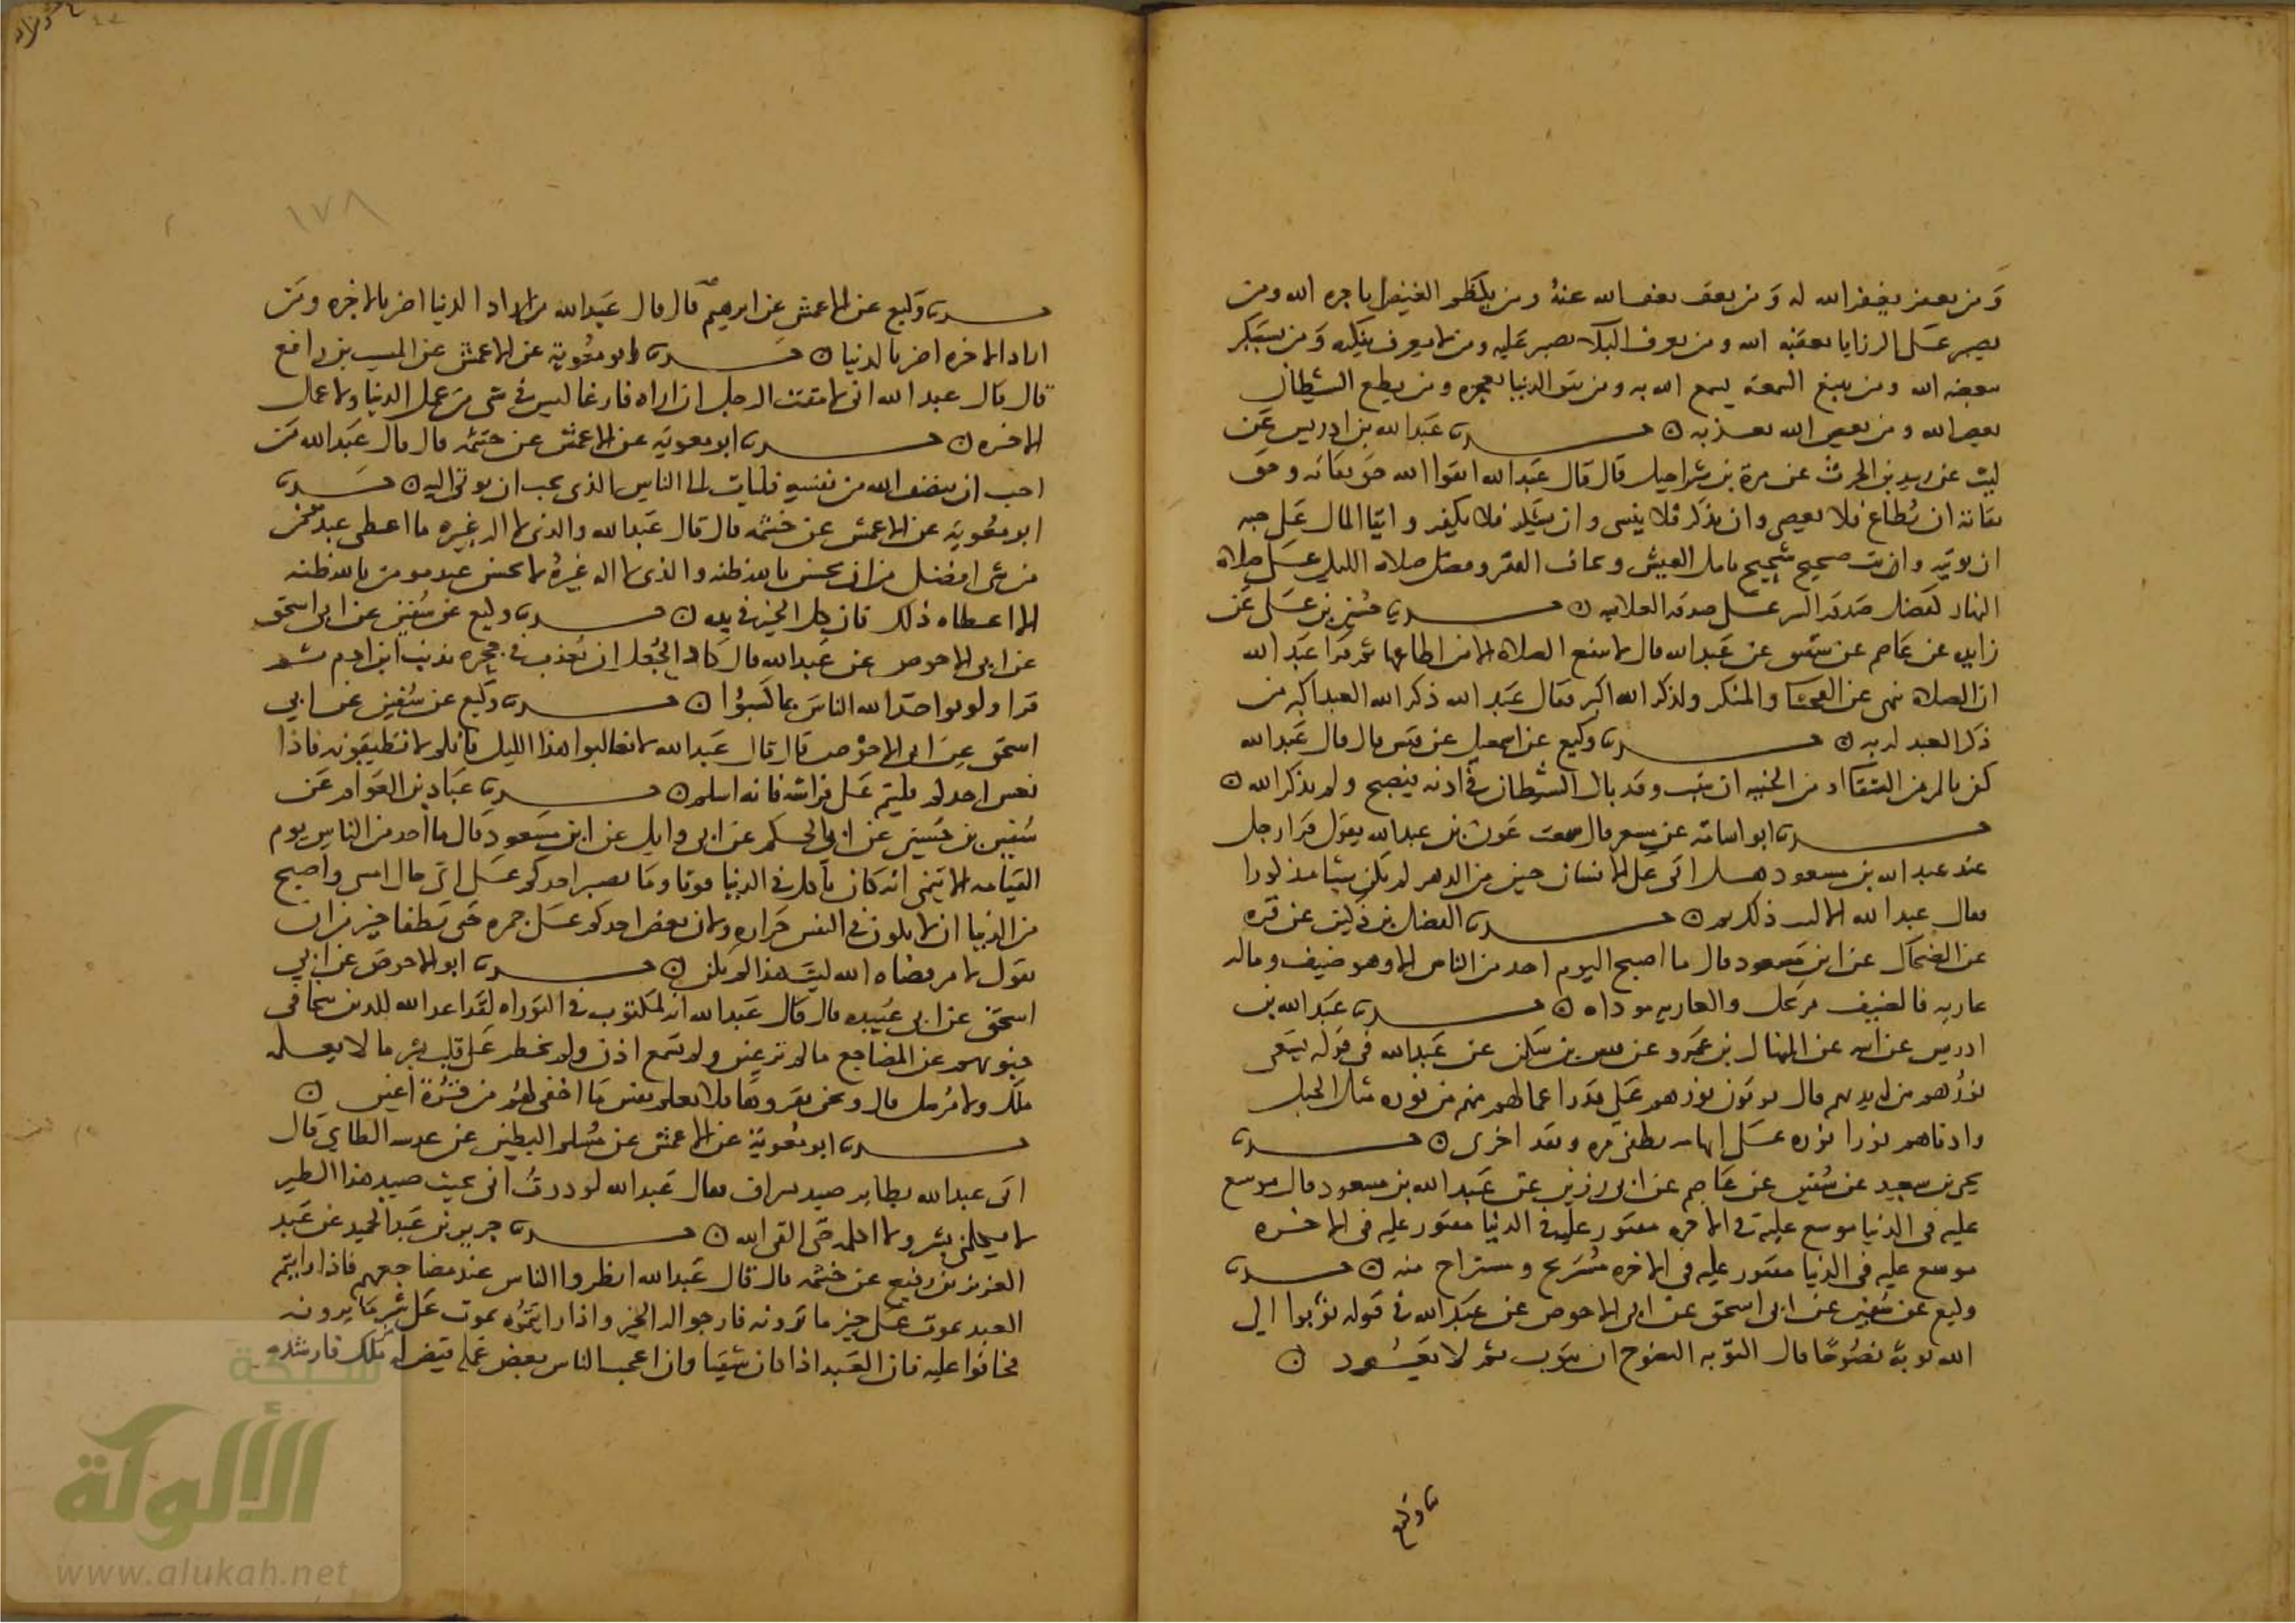 ومن يغفر يغفر الله له ومن يعف يعف الله عنه ومن يكظم الغيظ ياجره الله ومن
يصبر على الرزايا يعقبه الله ومن يعرف البلاء يصبر عليه ومن لا يعرف ينكره ومن يستكبر
يضعه الله ومن يبتغ السمعة يسمع الله به ومن ينو الدنيا تعجزه ومن يطع الشيطان
يعص الله ومن يعص الله يعذبه ن حدثنا عبد الله بن ادريس عن
ليث عن زبيد بن الحرث عن مرة بن شراحيل قال قال عبد الله اتقوا الله حق تقاته وحق
تقاته ان يطاع فلا يعصى وان يذكر فلا ينسى وان يشكر فلا يكفر وايتاء المال على حبه
ان توتيه وانت صحيح شحيح تامل العيش وتخاف الفقر وفضل صلاة الليل على صلاة
النهار كفضل صدقة السر على صدقة العلانيه ن حدثنا حسين بن علي عن
زايدة عن عاصم عن شقيق عن عبد الله قال لا تنفع الصلاة الا من اطاعها ثم قرا عبد الله
ان الصلاة تنهى عن الفحشا والمنكر ولذكر الله اكبر فقال عبد الله ذكر الله العبد اكبر من
ذكر العبد لربه ن حدثنا وكيع عن اسمعيل عن قيس قال قال عبد الله
كفى بالمرء من الشقاء او من الخيبه ان يبيت وقد بال الشيطان في اذنه فيصبح ولم يذكر الله ن
حدثنا ابو اسامة عن مسعر قال سمعت عون بن عبد الله يقول قرا رجل
عند عبد الله بن مسعود هل اتى على الانسان حين من الدهر لم يكن شيئا مذكورا
فقال عبد الله الا ليت ذلك لم ن حدثنا الفضل بن دكين عن قره
عن الضحاك عن ابن مسعود قال ما اصبح اليوم احد من الناس الا وهو ضيف وماله
عاريه فالضيف مرتحل والعاريه موداه ن حدثنا عبد الله بن
ادريس عن ابيه عن المنهال بن عمرو عن قيس بن سكن عن عبد الله في قوله يسعى
نورهم بين ايديهم قال يوتون نورهم على قدر اعمالهم منهم من نوره مثل الجبل
وادناهم نورا نوره على ابهامه يطفى مره ويقد اخرى ن حدثنا
يحيى بن سعيد عن سفين عن عاصم عن ابي رزين عن عبد الله بن مسعود قال موسع
عليه في الدنيا موسع عليه في الاخره مقتور عليه في الدنيا مقتور عليه في الاخره
موسع عليه في الدنيا مقتور عليه في الاخره مستريح ومستراح منه ن حدثنا
وكيع عن سفين عن ابي اسحق عن ابي الاحوص عن عبد الله في قوله توبوا الى
الله توبة نصوحا قال التوبه النصوح ان يتوب ثم لا يعود ن
ثنا وكيع
١٧٨
حدثنا وكيع عن الاعمش عن ابرهيم قال قال عبد الله من اراد الدنيا اضر بالاخره ومن
اراد الاخره اضر بالدنيا ن حدثنا ابو معوية عن الاعمش عن المسيب بن رافع
قال قال عبد الله اني لامقت الرجل ان اراه فارغا ليس في شى من عمل الدنيا ولا عمل
الاخره ن حدثنا ابو معويه عن الاعمش عن خيثمه قال قال عبد الله من
احب ان ينصف الله من نفسه فليات الى الناس الذي يحب ان يوتى اليه ن حدثنا
ابو معوية عن الاعمش عن خيثمه قال قال عبد الله والذي لا اله غيره ما اعطى عبد مومن
من شى افضل من ان يحسن بالله ظنه والذي لا اله غيره لا يحسن عبد مومن بالله ظنه
الا اعطاه ذلك فان كل الخير في يده ن حدثنا وكيع عن سفين عن ابي اسحق
عن ابي الاحوص عن عبد الله قال كاد الجعل ان يعذب في جحره بذنب ابن ادم ثم
قرا ولو يواخذ الله الناس بما كسبوا ن حدثنا وكيع عن سفين عن ابي
اسحق عن ابي الاحوص قال قال عبد الله لا تغالبوا هذا الليل فانكم لا تطيقونه فاذا
نعس احدكم فلينم على فراشه فانه اسلم ن حدثنا عباد بن العوام عن
سفين بن حسين عن ابي الحكم عن ابي وايل عن ابن مسعود قال ما احد من الناس يوم
القيامه الا يتمنى انه كان ياكل في الدنيا قوتا وما يضر احدكم على اي حال امسى واصبح
من الدنيا ان لا يكون في النفس حزازه ولان يعض احدكم على جمرة حتى تطفا خير من ان
يقول لامر قضاه الله ليت هذا لم يكن ن حدثنا ابو الاحوص عن ابي
اسحق عن ابي عبيده قال قال عبد الله انه لمكتوب في التوراه لقد اعد الله للذين تتجافى
جنوبهم عن المضاجع ما لم تر عين ولم تسمع اذن ولم يخطر على قلب بشر ما لا يعلمه
ملك ولا مرسل قال ونحن نقروها فلا تعلم نفس ما اخفي لهم من قرة اعين ن
حدثنا ابو معوية عن الاعمش عن مسلم البطين عن عدسه الطاي قال
اتي عبد الله بطاير صيد بشراف فقال عبد الله لوددت اني حيث صيد هذا الطير
لا يكلمني بشر ولا اكلمه حتى القى الله ن حدثنا جرير بن عبد الحميد عن عبد
العزيز بن رفيع عن خيثمه قال قال عبد الله انظروا الناس عند مضاجعهم فاذا رايتم
العبد يموت على خير ما ترونه فارجوا له الخير واذا رايتموه يموت على شر ما ترونه
فخافوا عليه فان العبد اذا كان شقيا وان اعجب الناس بعض عمله قيض له ملك فارشده
شبكة
الألوكة
www.alukah.net